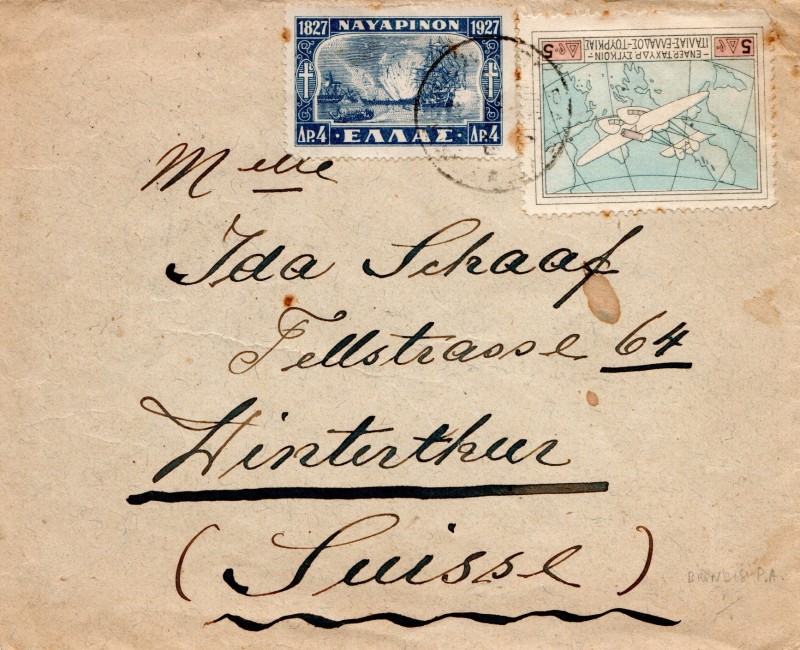 1827 ΝΑΥΑΡΙΝΟΝ 1927
ΔΡ.4 · ΕΛΛΑΣ · ΔΡ.4
5 ΔΡ. ΕΝΑΕΡ. ΤΑΧΥΔΡ. ΣΥΓΚΟΙΝ= ΔΡ. 5
ΙΤΑΛΙΑΣ-ΕΛΛΑΔΟΣ-ΤΟΥΡΚΙΑΣ
Melle
Ida Schaaf
Tellstrasse 64
Winterthur
(Suisse)
P.A.